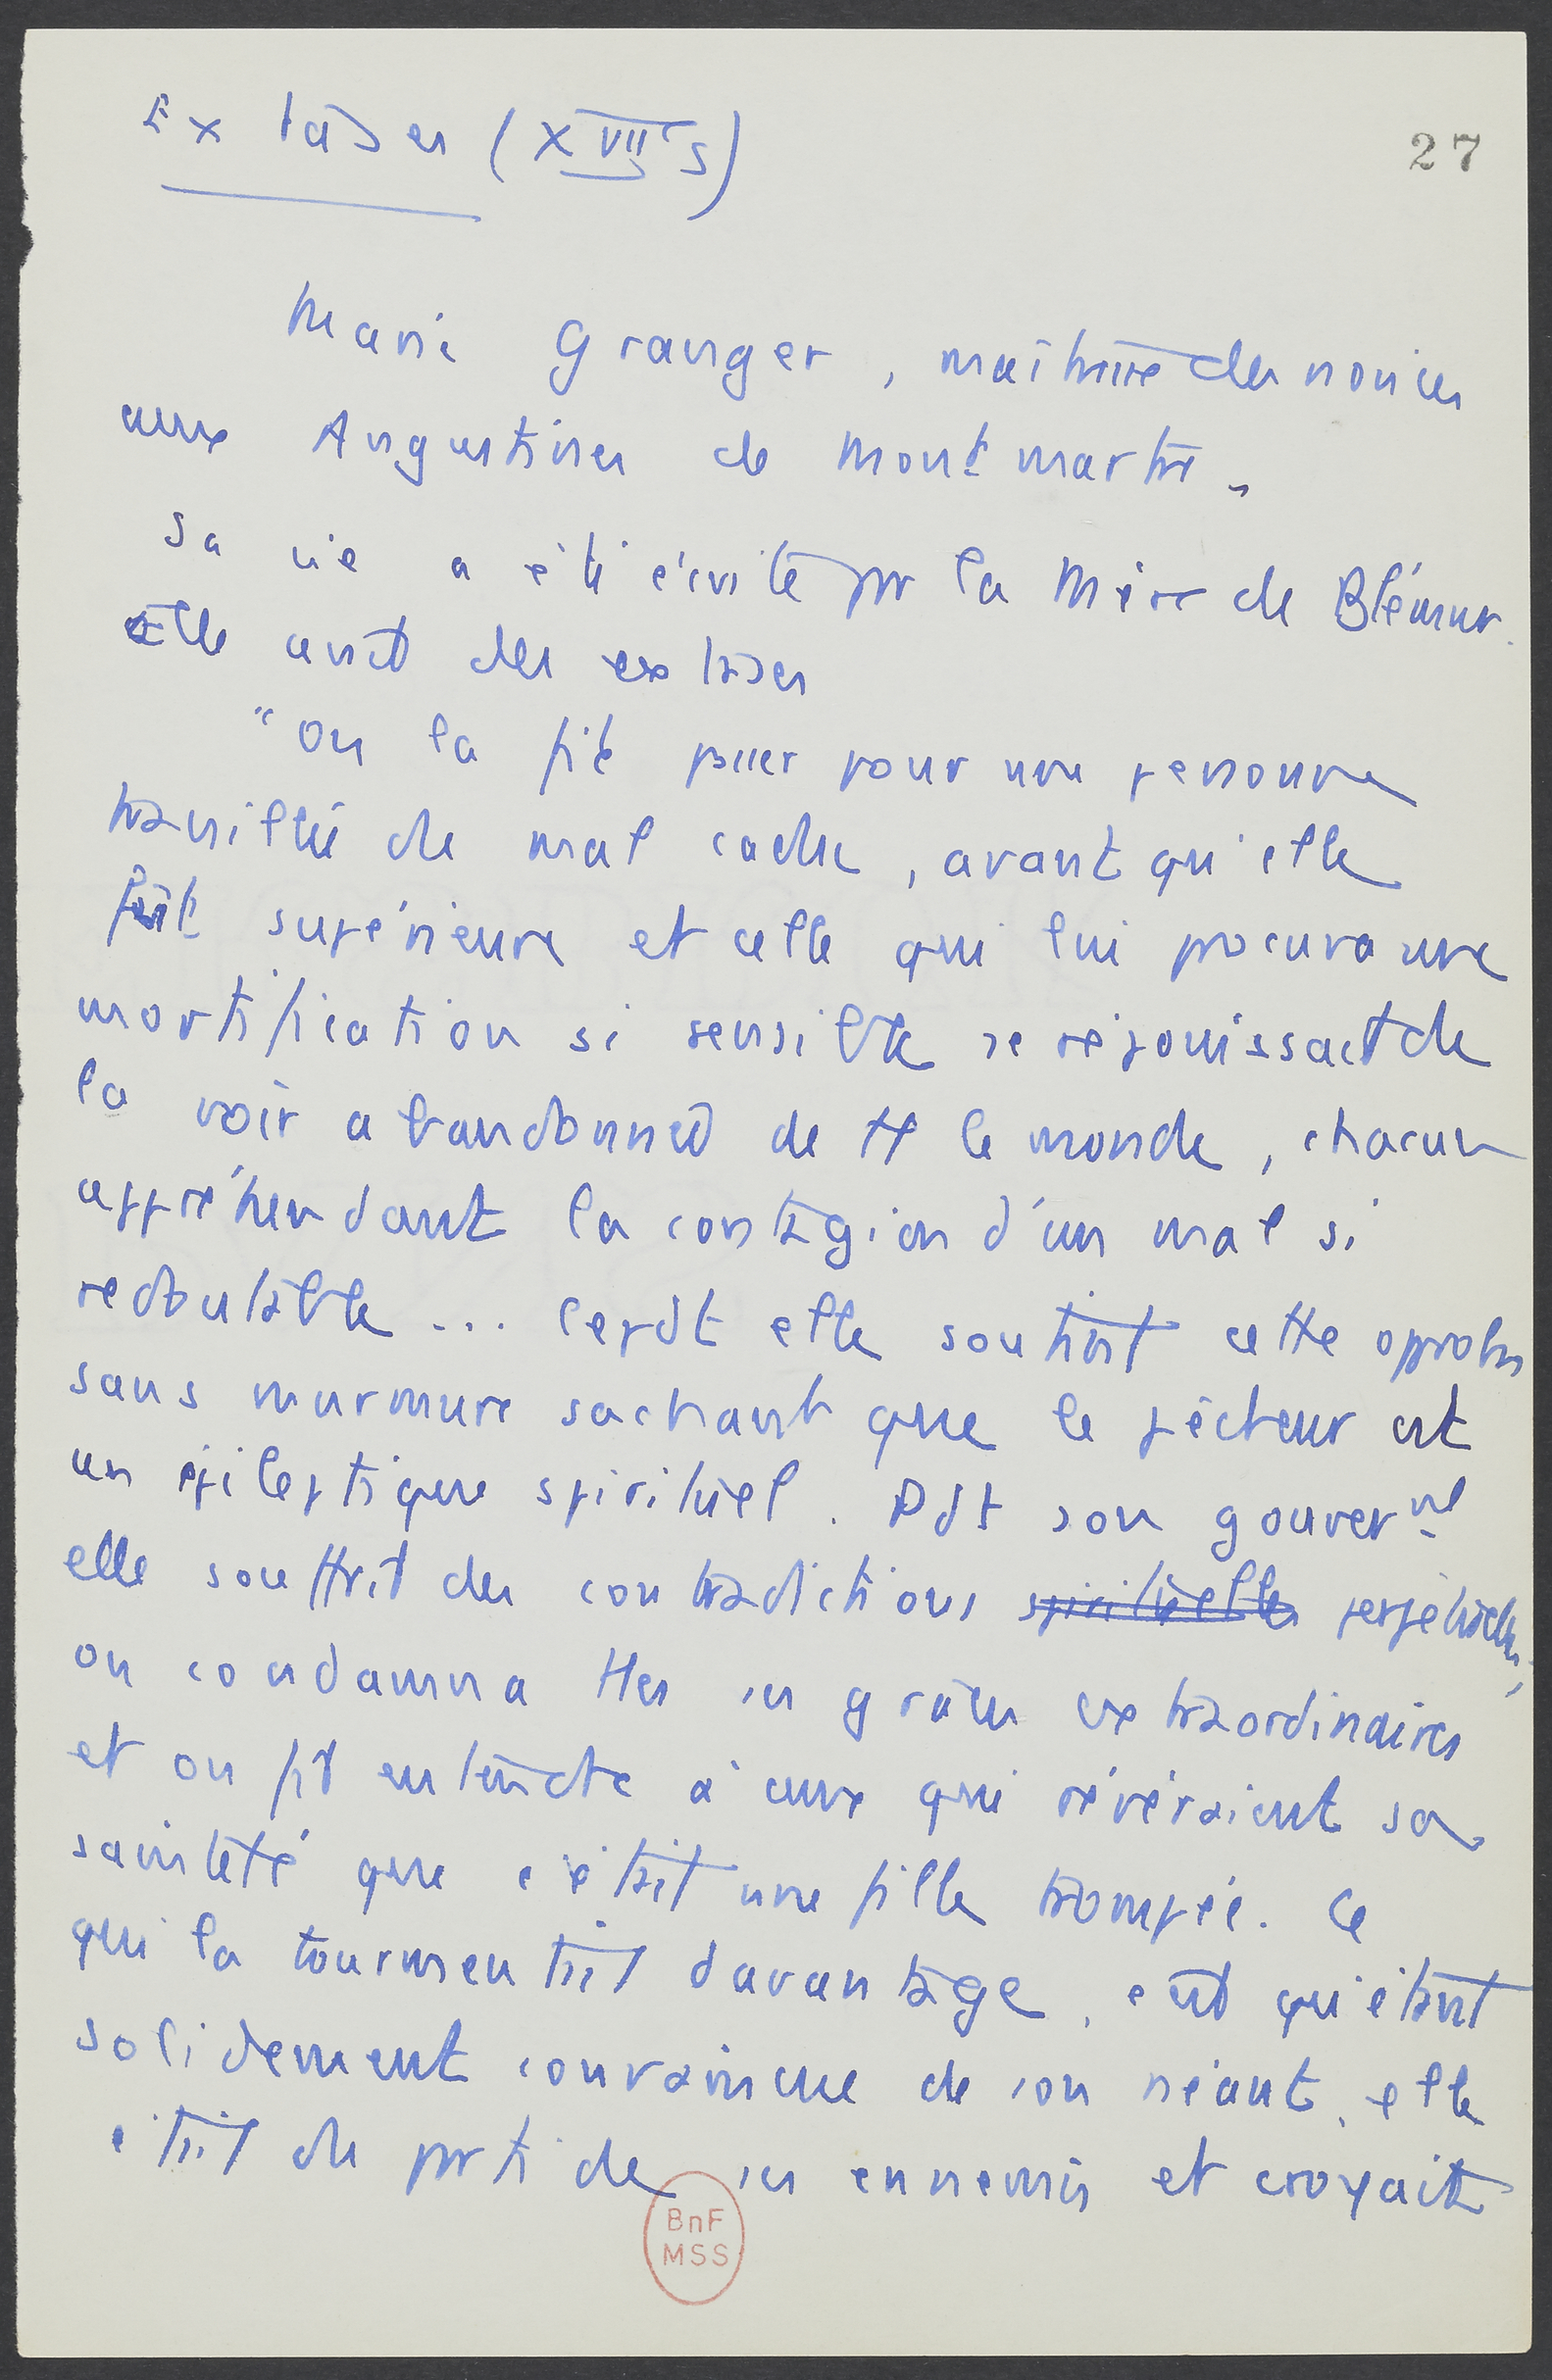 Extases (XVIIe s)
27
Marie Granger, maîtresse des novices
aux Augustines de Montmartre.
Sa vie a été écrite pr la Mère de Blémur.
Elle avait des extases
"On la fit passer pour une personne
travaillée de mal caduc, avant qu'elle
fût supérieure et celle qui lui procura une
mortification si sensible se réjouissait de
la voir abandonnée de tt le monde, chacun
appréhendant la contagion d'un mal si
redoutable ... Cepdt elle soutint cette
sans murmure sachant que le pécheur est
un épileptique spirituel. Pdt son gouvernt
elle souffrit des contradictions spirituelles perpétuelles ;
on condamna ttes ses grâces extraordinaires
et on fit entendre à ceux qui révéraient sa
sainteté que c'était une fille trompée. Ce
qui la tourmentait davantage, c'est qu'étant
solidement convaincue de son néant, elle
était du parti de ses ennemis et croyait
BnF
MSS